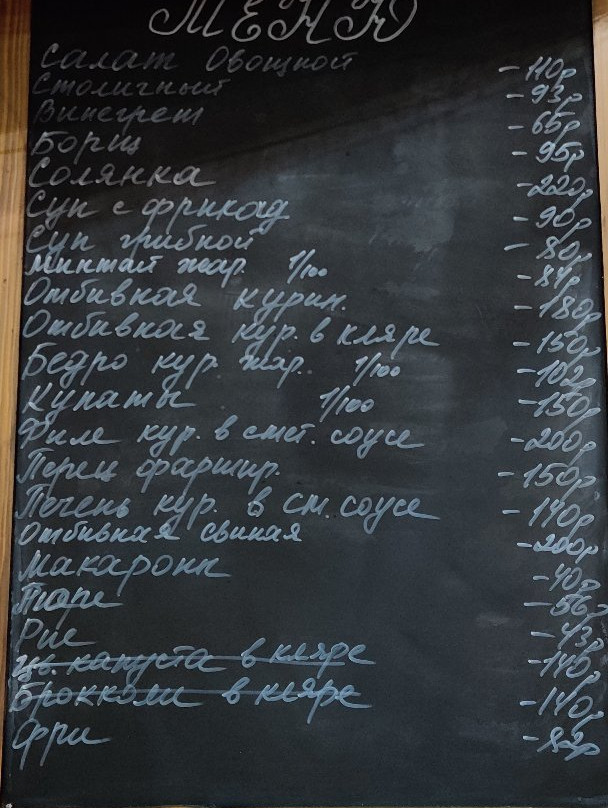 МЕНЮ
Салат Овощной - 110р
Столичный - 93р
Винегрет - 65р
Борщ - 95р
Солянка - 220р
Суп с фрикад - 90р
Суп грибной - 80р
Минтай жар. 1/100 - 84р
Отбивная курин. - 180р
Отбивная кур. в кляре - 150р
Бедро кур. жар. 1/100 - 102р
Купаты 1/100 - 150р
Филе кур. в смет. соусе - 200р
Перец фаршир. - 150р
Печень кур. в см. соусе - 140р
Отбивная свиная - 200р
Макароны - 40р
Пюре - 56р
Рис - 43р
Цв. капуста в кляре - 140р
Брокколи в кляре - 140р
Фри - 82р